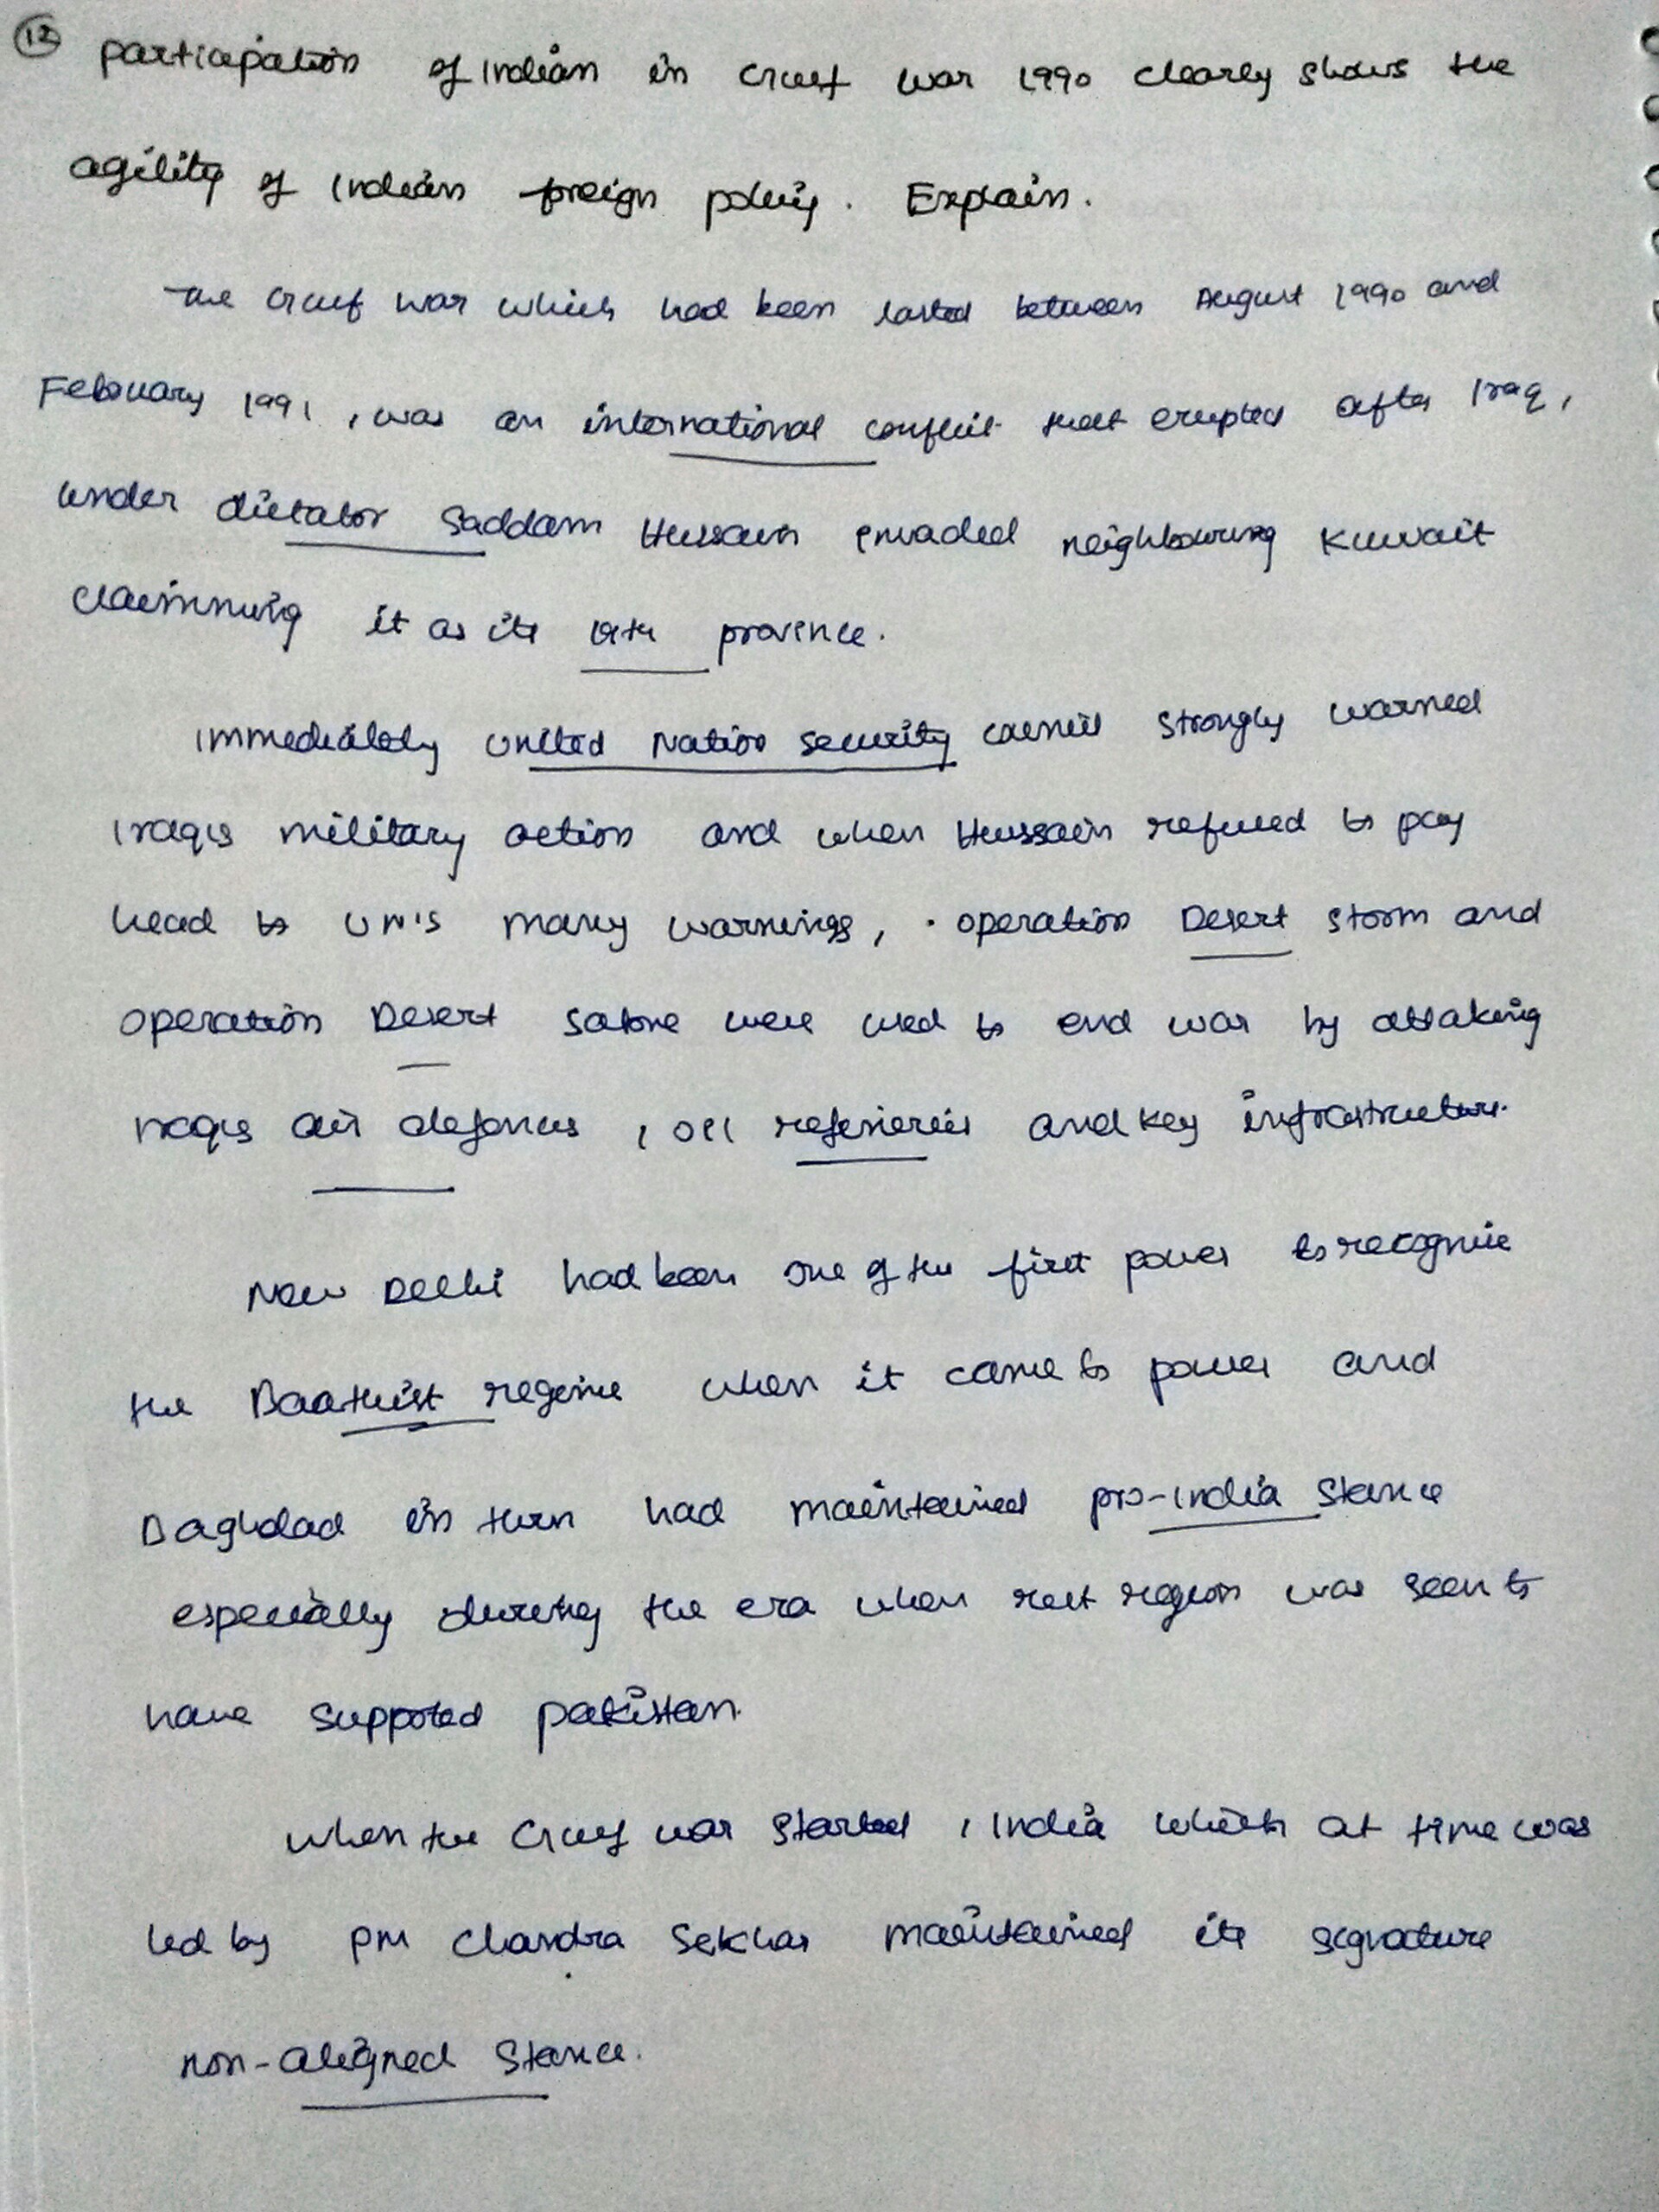 12 participation of Indian in Gulf war 1990 clearly shows the
agility of Indian foreign policy. Explain.
The Gulf war which had been lasted between August 1990 and
February 1991, was an international conflict that erupted after Iraq,
under dictator Saddam Hussain invaded neighbouring Kuwait
claimming it as its 19th province.
Immediately United Nation security council strongly warned
Iraqis military action and when Hussain refused to pay
head to UN's many warnings, operation Desert storm and
operation Desert sabre were used to end war by attaking
Iraqis air defences, oil refineries and key infrastructure.
New Delhi had been one of the first power to recognise
the Baathist regime when it came to power and
Baghdad in turn had maintained pro-India stance
especially during the era when rest region was seen to
have supported pakistan.
when the Gulf war started, India which at time was
led by PM Chandra Sekhar maintained its signature
non-aligned stance.